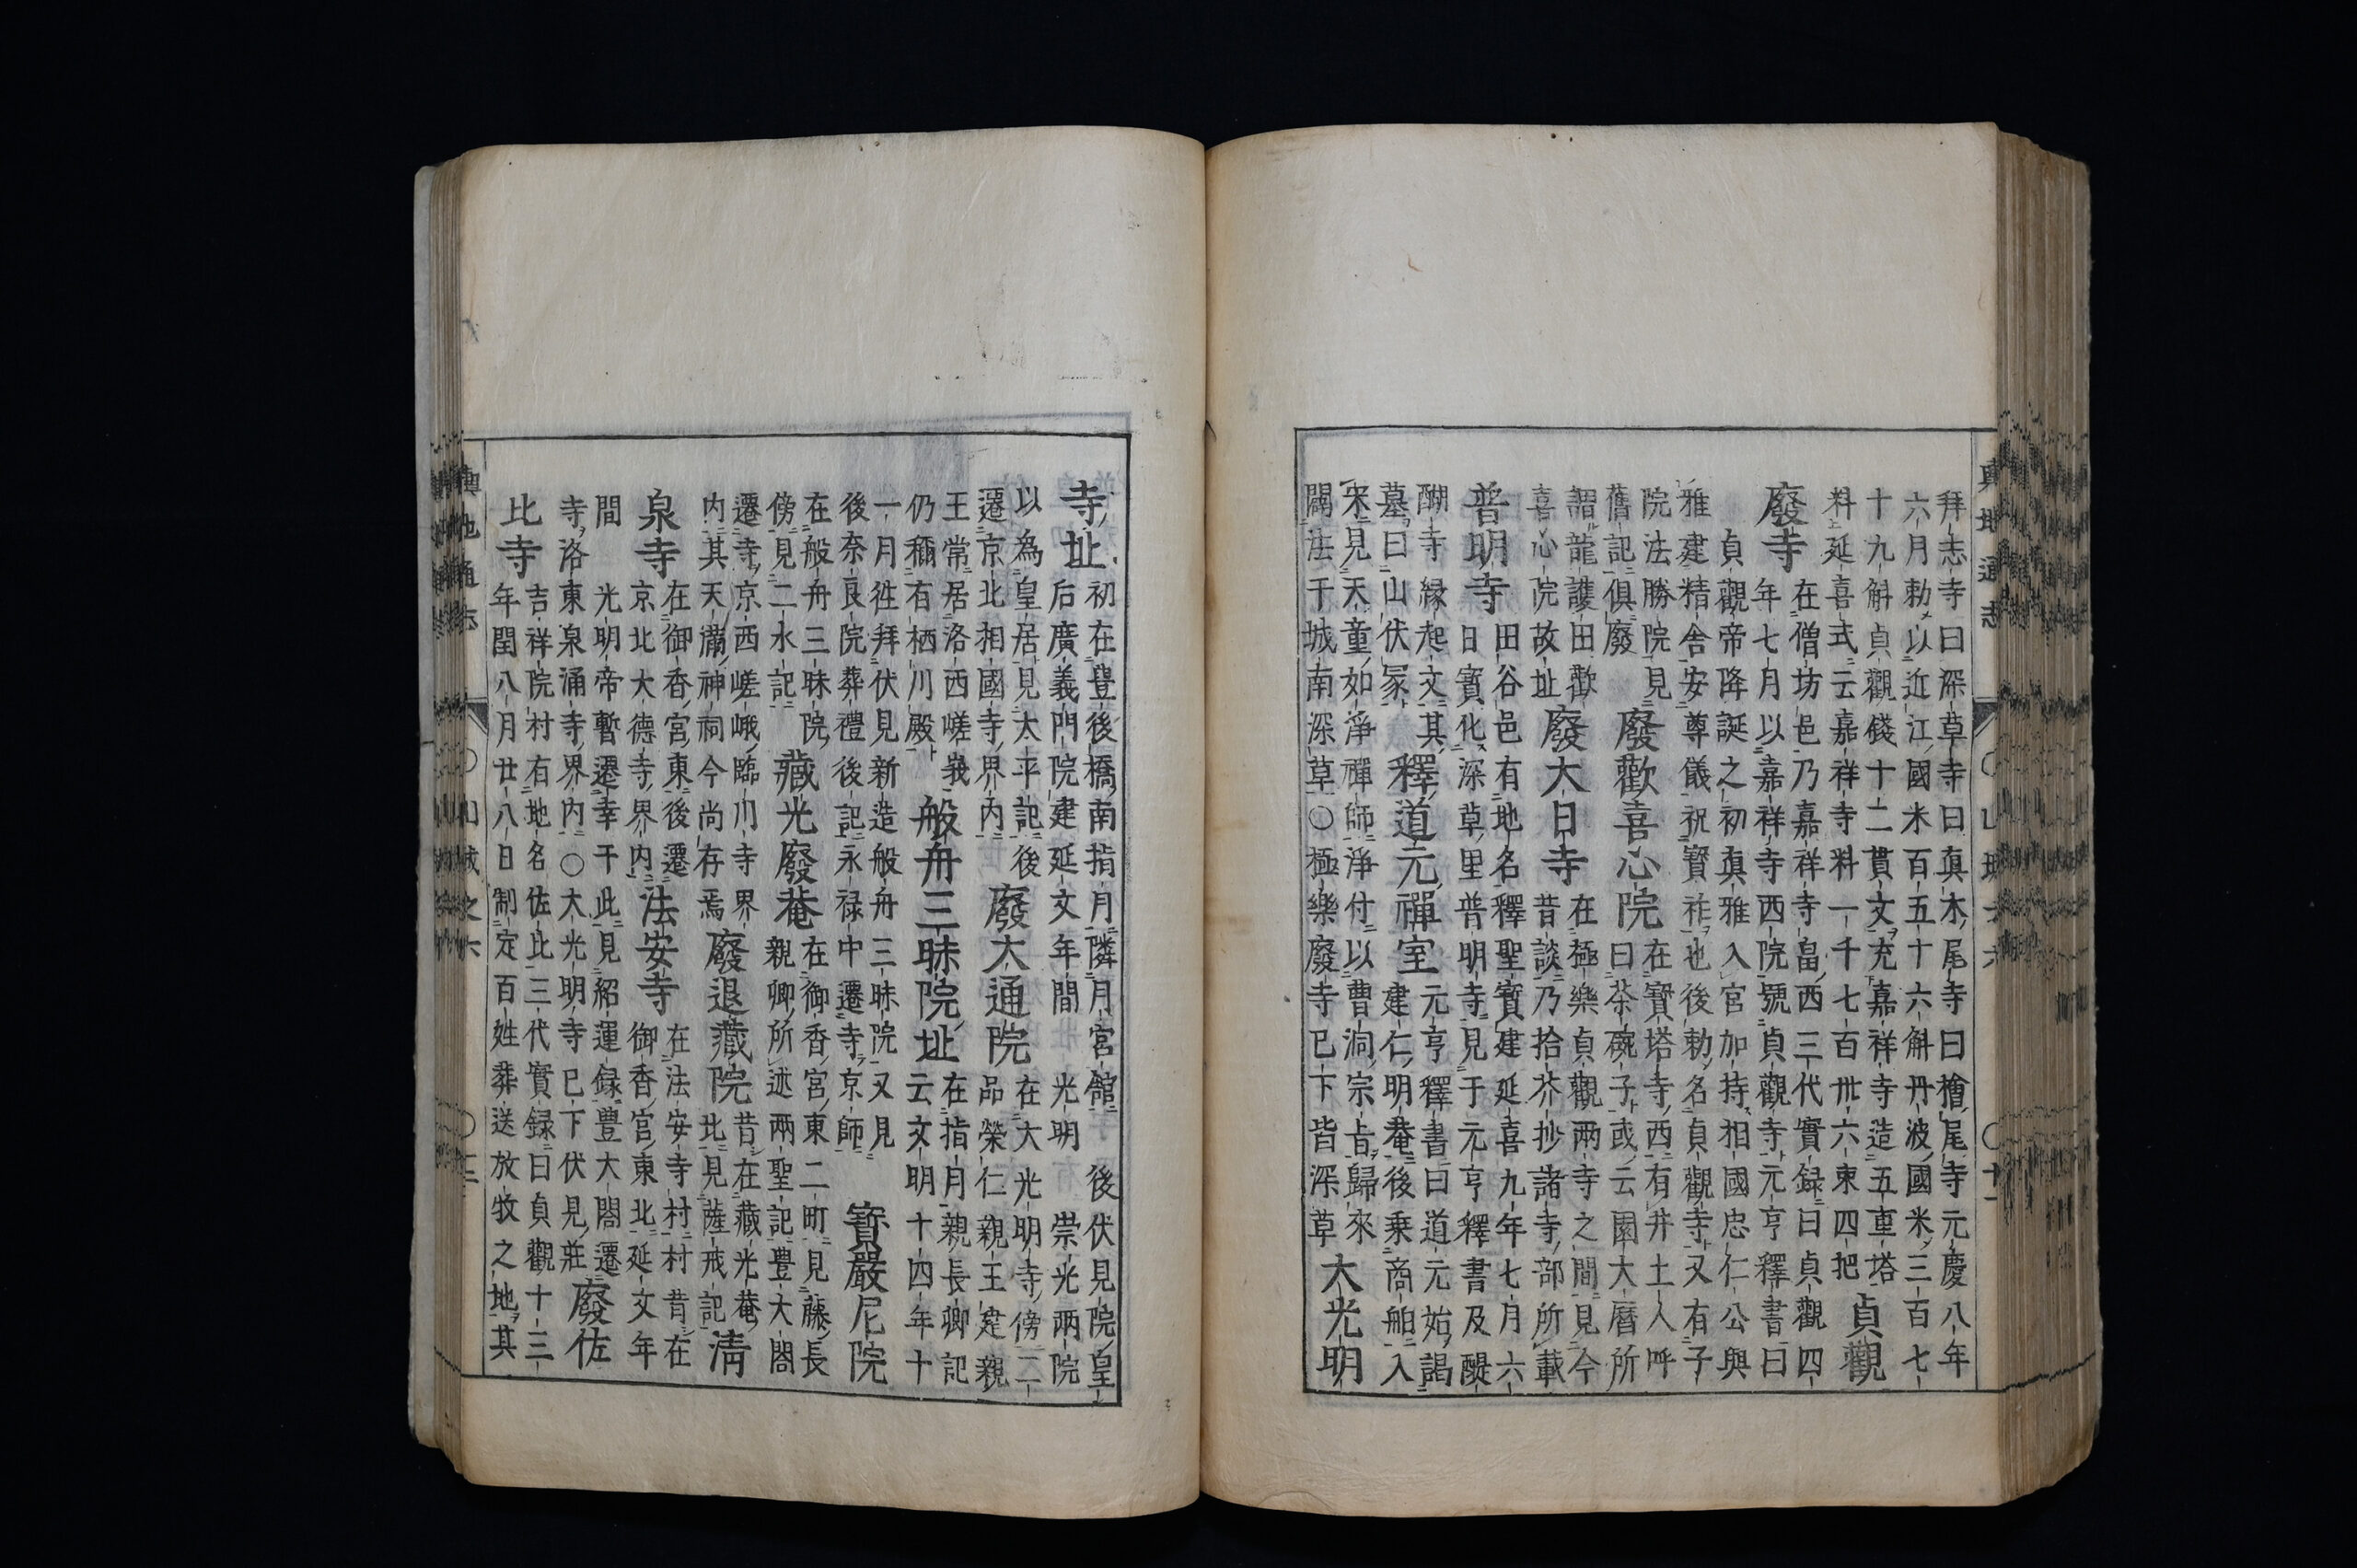 拜志寺曰深草寺曰真木尾寺曰檜尾寺元慶八年
六月勅以近江國米百五十六斛丹波國米三百七
十九斛貞觀錢十二貫文充嘉祥寺造五重塔
料延喜式云嘉祥寺料一千七百卅六束四把
貞觀
廢寺
在僧坊邑乃嘉祥寺畠西三代實録曰貞觀四
年七月以嘉祥寺西院號貞觀寺元亨釋書曰
貞觀帝降誕之初真雅入宮加持相國忠仁公與
雅建精舎安尊儀祝寳祚也後勅名貞觀寺又有子
院法勝院見
舊記俱廢
廢歡喜心院
在寳塔寺西有井土人呼
曰茶碗子或云園大曆所
謂龍護田歡
喜心院故址
廢大日寺
在極樂貞觀兩寺之間見今
昔談乃拾芥抄諸寺部所載
普明寺
田谷邑有地名釋聖寳建延喜九年七月六
日寳化深草里普明寺見于元亨釋書及醍
醐寺縁起文其
墓曰山伏冢
釋道元禪室
元亨釋書曰道元始謁
建仁明菴後乗商舶入
宋見天童如淨禪師淨付以曹洞宗旨歸來
闢法于城南深草○極樂廢寺已下皆深草
大光明
寺址
初在豊後橋南指月隣月宮舘光明後伏見院皇
后廣義門院建延文年間光明崇光兩院
以為皇居見太平記後
遷京北相國寺界内
廢大通院
在大光明寺傍二
品榮仁親王建親
王常居洛西嵯峩
仍稱有栖川殿
般舟三昧院址
在指月親長卿記
云文明十四年十
一月徃拜伏見新造般舟三昧院又見
後奈良院葬禮後記永禄中遷寺京師
寳嚴尼院
在般舟三昧院
傍見二水記
藏光廢菴
在御香宮東二町見藤長
親卿所述兩聖記豊大閤
遷寺京西嵯峨臨川寺界
内其天滿神祠今尚存焉
廢退藏院
昔在藏光菴
北見薩戒記
清
泉寺
在御香宮東後遷
京北大德寺界内
法安寺
在法安寺村村昔在
御香宮東北延文年
間光明帝暫遷幸于此見紹運録豊大閤遷
寺洛東泉涌寺界内○大光明寺已下伏見莊
廢佐
比寺
吉祥院村有地名佐比三代實録曰貞觀十三
年閏八月廿八日制定百姓葬送放牧之地其